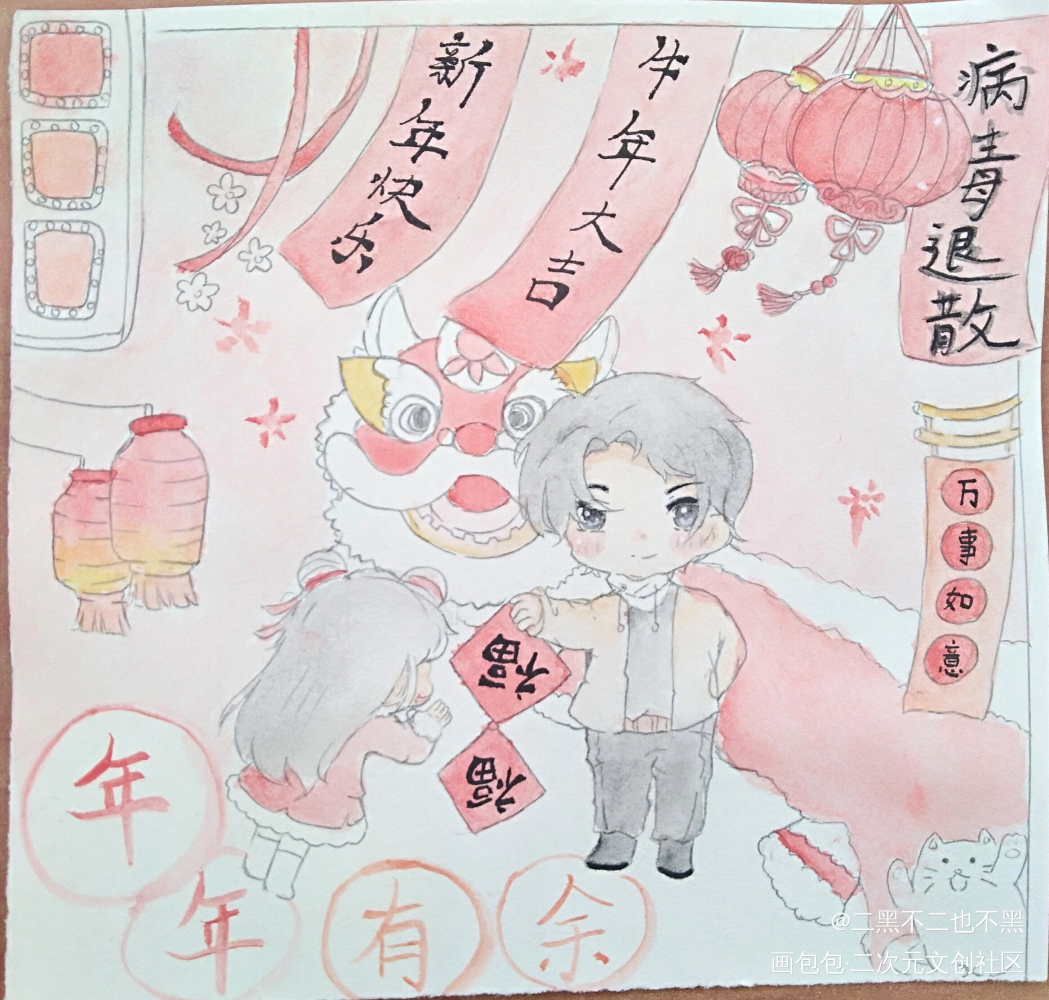 新年快乐
牛年大吉
病毒退散
万事如意
福
福
年年有余
@二黑不二也不黑
画包包·二次元文创社区